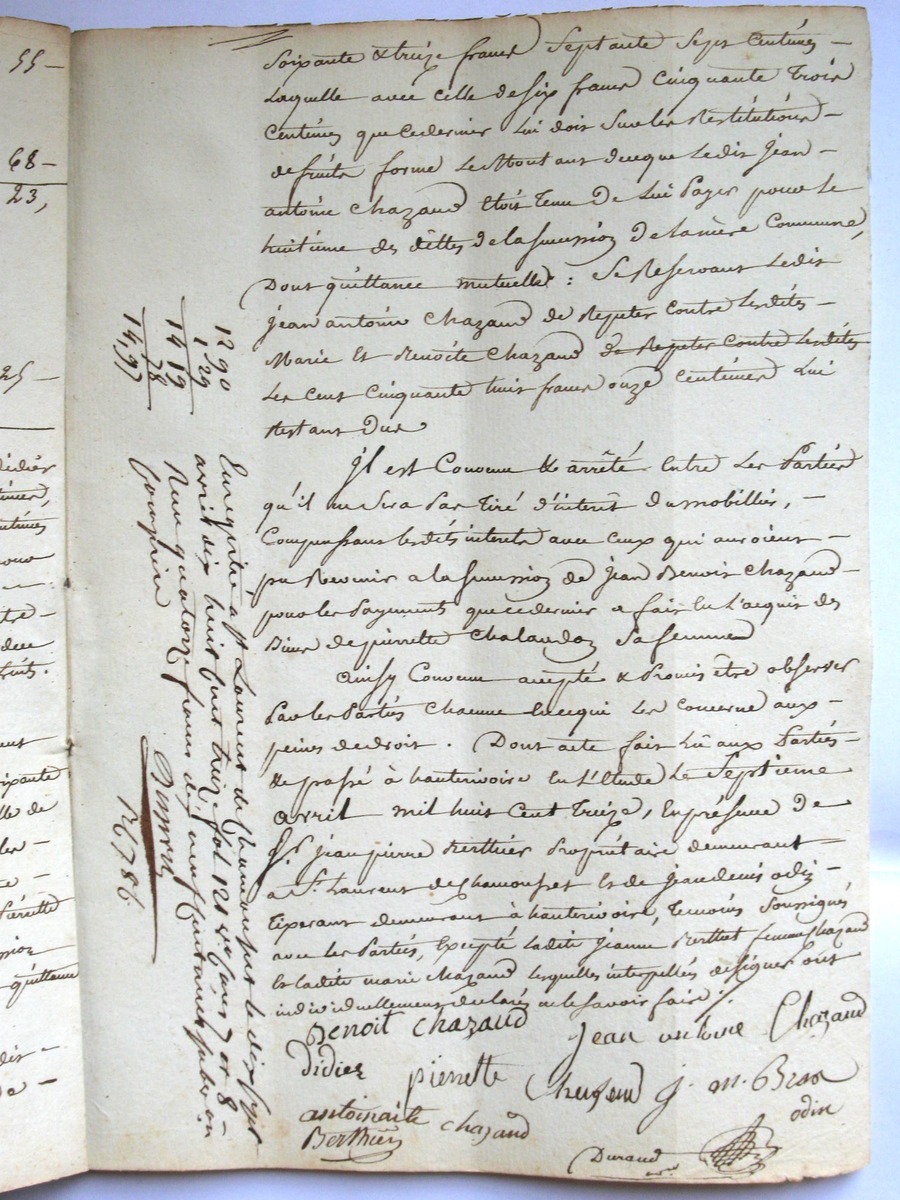 55 –
68 –
23,
25 –
Soixante & treize francs Septante Sept Centimes –
Laquelle avec celle de Six francs Cinquante Trois
Centimes que ce dernier lui doit Sur les Restitutions –
de fruits forme Le Montant de ce que Ledit Jean –
antoine Chazaud etoit Tenu De Lui Payer pour le
huitième des dettes de la Succession De la mère Commune,
Dont quittance mutuelle : Se Reservant Ledit
Jean antoine Chazaud de Repeter Contre Lesdites –
Marie et Benoîte Chazaud de Repeter Contre Lesdites
Les Cent Cinquante huit francs onze Centimes Lui
Restant Dus
Il est Convenu & arrêté Entre Les Parties
qu'il ne Sera Pas Tiré d'interêt Du mobillier, –
Compensant lesdits interets avec Ceux qui auroient –
pu Revenir a la Succession de Jean Benoit Chazaud –
pour les Payements que ce dernier a fait En L'acquis des
Biens de pierrette Chalandon Sa femme
Ainsy Convenu accepté & Promis être observer
Par les Parties Chacune En ce qui Les Concerne aux –
peines de droit . Dont acte fait Lû aux Parties –
& passé à hauterivoire En L'Etude Le Septieme
avril mil huit Cent Treize, En présence de
Sr. Jean pierre Berthier Propriétaire demeurant –
a St. Laurent de Chamousset et de Jean denis odin
Tixerant demeurant à hauterivoire, Temoins Soussignés
avec les Parties, Excepté Ladite Jeanne Berthet femme Chazaud
et Ladite marie Chazaud lesquelles interpellés de signer ont
individuellement déclarés ne le savoir faire ./.
Benoit Chazaud
Jean antoine Chazaud
didier
pierrette
Chazaud
J. m. Bras
odin
antoinaite Chazaud
Berthier
Durand
Enregistré à St Laurent de Chamousset le dix Sept
avril dix huit Cent treize, fol. 121 Vo Cases 7 or 8
Reçu quatorze francs dix neuf Centimes
Compris
1290
129
1419
78
14,97